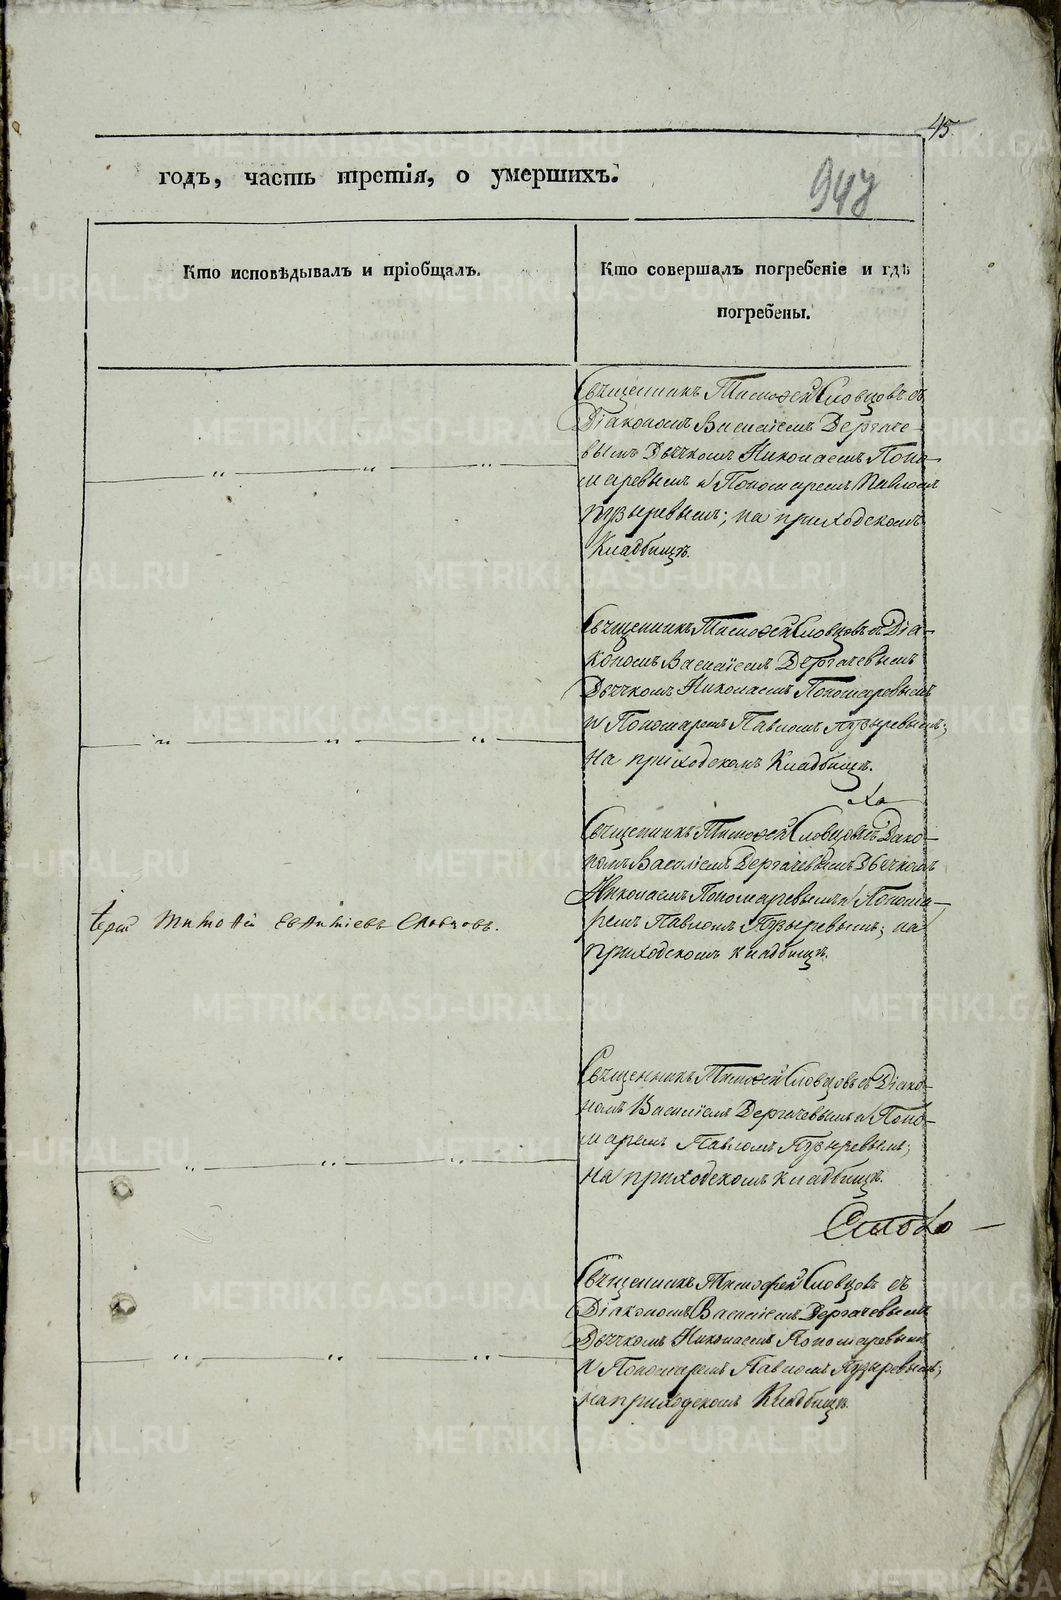 45
годъ, часть третія, о умершихъ.
948
Кто исповѣдывалъ и пріобщалъ.
Кто совершалъ погребеніе и гдѣ
погребены.
Священникъ Тимофей Словцовъ съ
Діакономъ Василіемъ Дергаче-
вымъ Дьячкомъ Николаемъ Поно-
маревымъ и Пономаремъ Павломъ
Пузыревымъ; на приходскомъ
Кладбищѣ.
Священникъ Тимофей Словцовъ съ Діа-
кономъ Василіемъ Дергачевымъ
Дьячкомъ Николаемъ Пономаревымъ
и Пономаремъ Павломъ Пузыревымъ;
на приходскомъ Кладбищѣ.
Священникъ Тимофей Словцовъ съ Діако-
номъ Василіемъ Дергачевымъ Дьячкомъ
Николаемъ Пономаревымъ и Понома-
ремъ Павломъ Пузыревымъ; на
приходскомъ кладбищѣ.
Іерей Тимофей Словцовъ.
Священникъ Тимофей Словцовъ съ Діако-
номъ Василіемъ Дергачевымъ и Поно-
маремъ Павломъ Пузыревымъ;
на приходскомъ кладбищѣ.
Священникъ Тимофей Словцовъ съ
Діакономъ Василіемъ Дергачевымъ
Дьячкомъ Николаемъ Пономаревымъ
и Пономаремъ Павломъ Пузыревымъ;
на приходскомъ Кладбищѣ.
METRIKI.GASO-URAL.RU